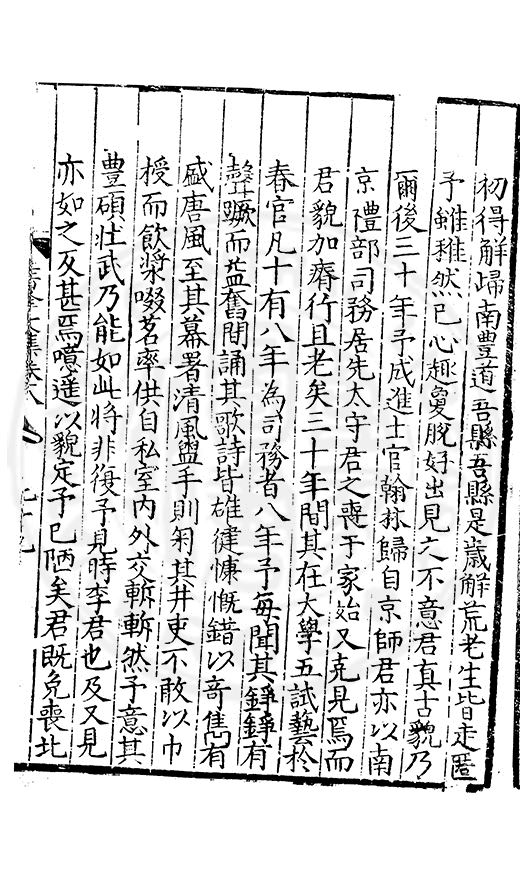 初得解歸南豐道吾縣吾縣是歲解荒老生皆走匿
予雖稚然已心趣敻脫好出見之不意君真古貌乃
爾後三十年予成進士官翰林歸自京師君亦以南
京禮部司務居先太守君之喪于家始又克見焉而
君貌加瘠行且老矣三十年間其在大學五試藝於
春官凡十有八年為司務者八年予每聞其錚錚有
聲蹶而益奮間誦其歌詩皆雄健慷慨錯以竒雋有
盛唐風至其幕署清風盥手則匊其井吏不敢以巾
授而飲漿啜茗率供自私室內外交斬斬然予意其
豊碩壯武乃能如此將非復予見時李君也及又見
亦如之又甚焉噫遽以貌定予已陋矣君既免喪北
文集卷八
九十九